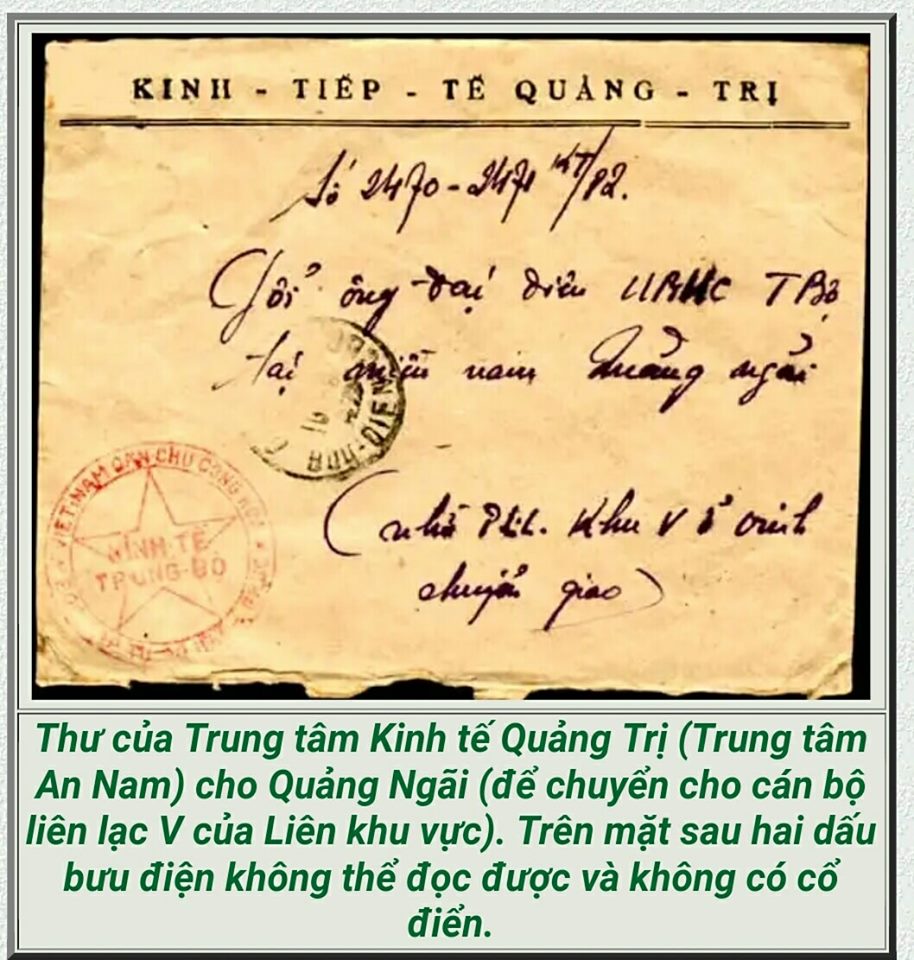 KINH - TIẾP - TẾ QUẢNG - TRỊ
Số 2470-2471 KT/P2.
Gởi ông đại diện UBHC TBộ
tại miền nam Quảng ngãi
BƯU-ĐIỆN
VIET-NAM DAN CHU CONG HOA
KINH TẾ
TRUNG-BỘ
(nhờ Khu V ở
chuyển giao)
Thư của Trung tâm Kinh tế Quảng Trị (Trung tâm
An Nam) cho Quảng Ngãi (để chuyển cho cán bộ
liên lạc V của Liên khu vực). Trên mặt sau hai dấu
bưu điện không thể đọc được và không có cổ
điển.